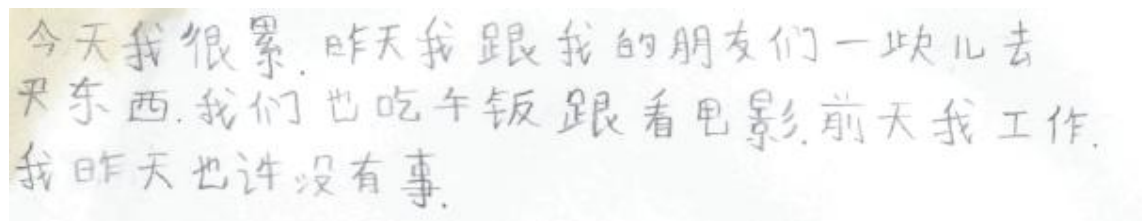 今天我很累.昨天我跟我的朋友们一块儿去
买东西.我们也吃午饭跟看电影.前天我工作.
我昨天也许没有事.